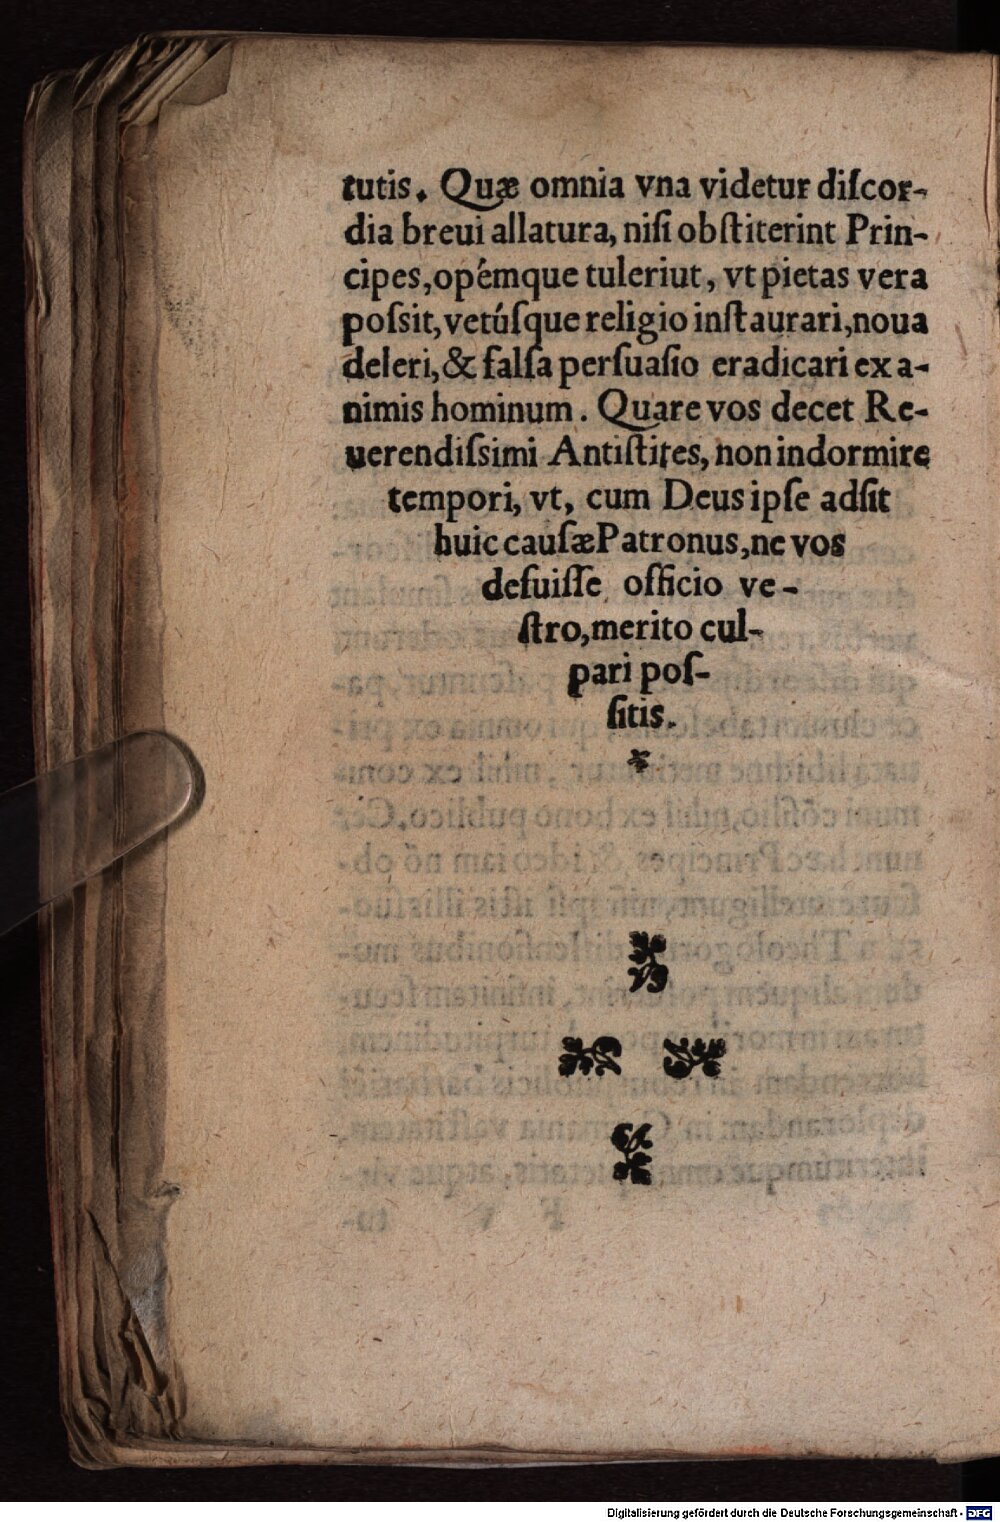 tutis. Quæ omnia vna videtur diſcor-
dia breui allatura, niſi obſtiterint Prin-
cipes, opémque tuleriut, vt pietas vera
poſsit, vetúſque religio inſtaurari, noua
deleri, & falſa perſuaſio eradicari ex a-
nimis hominum. Quare vos decet Re-
uerendiſsimi Antiſtites, non indormire
tempori, vt, cum Deus ipſe adſit
huic cauſæ Patronus, ne vos
defuiſſe officio ve-
ſtro, merito cul-
pari poſ-
ſitis.
*
Digitalisierung gefördert durch die Deutsche Forschungsgemeinschaft - DFG